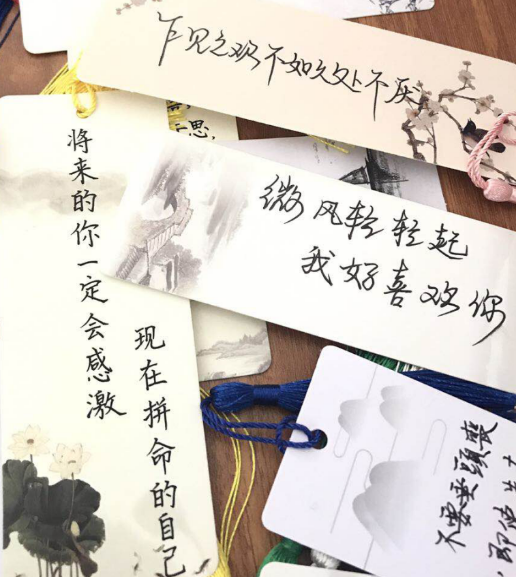 乍见之欢不如久处不厌
思,
将来的你一定会感激
现在拼命的自己
微风轻轻起
我好喜欢你
不要垂頭喪